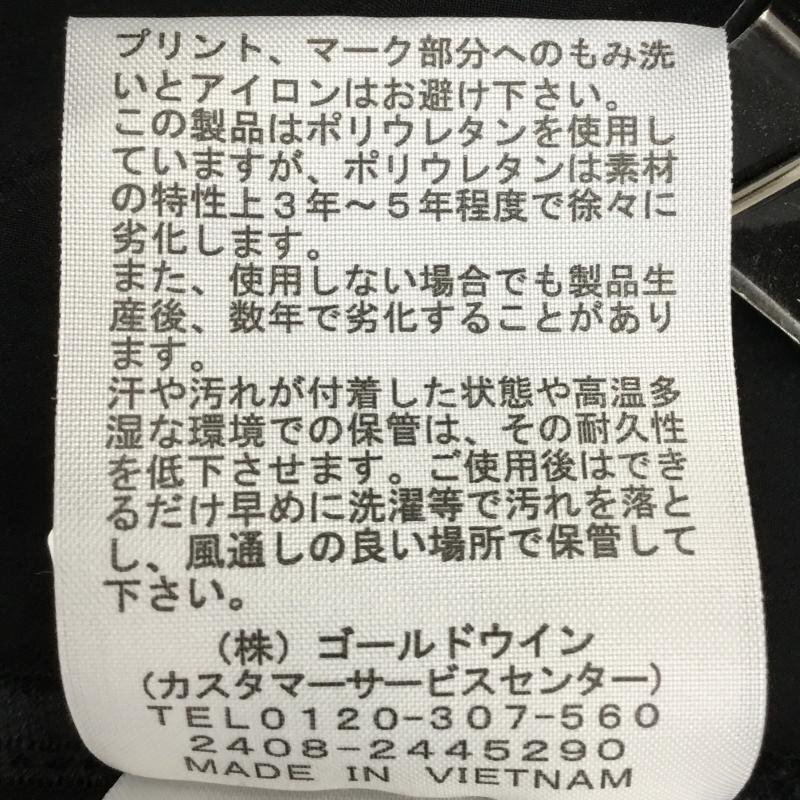 プリント、マーク部分へのもみ洗
いとアイロンはお避け下さい。
この製品はポリウレタンを使用し
ていますが、ポリウレタンは素材
の特性上３年～５年程度で徐々に
劣化します。
また、使用しない場合でも製品生
産後、数年で劣化することがあり
ます。
汗や汚れが付着した状態や高温多
湿な環境での保管は、その耐久性
を低下させます。ご使用後はでき
るだけ早めに洗濯等で汚れを落と
し、風通しの良い場所で保管して
下さい。
（株）ゴールドウイン
（カスタマーサービスセンター）
ＴＥＬ０１２０－３０７－５６０
２４０８－２４４５２９０
MADE IN VIETNAM